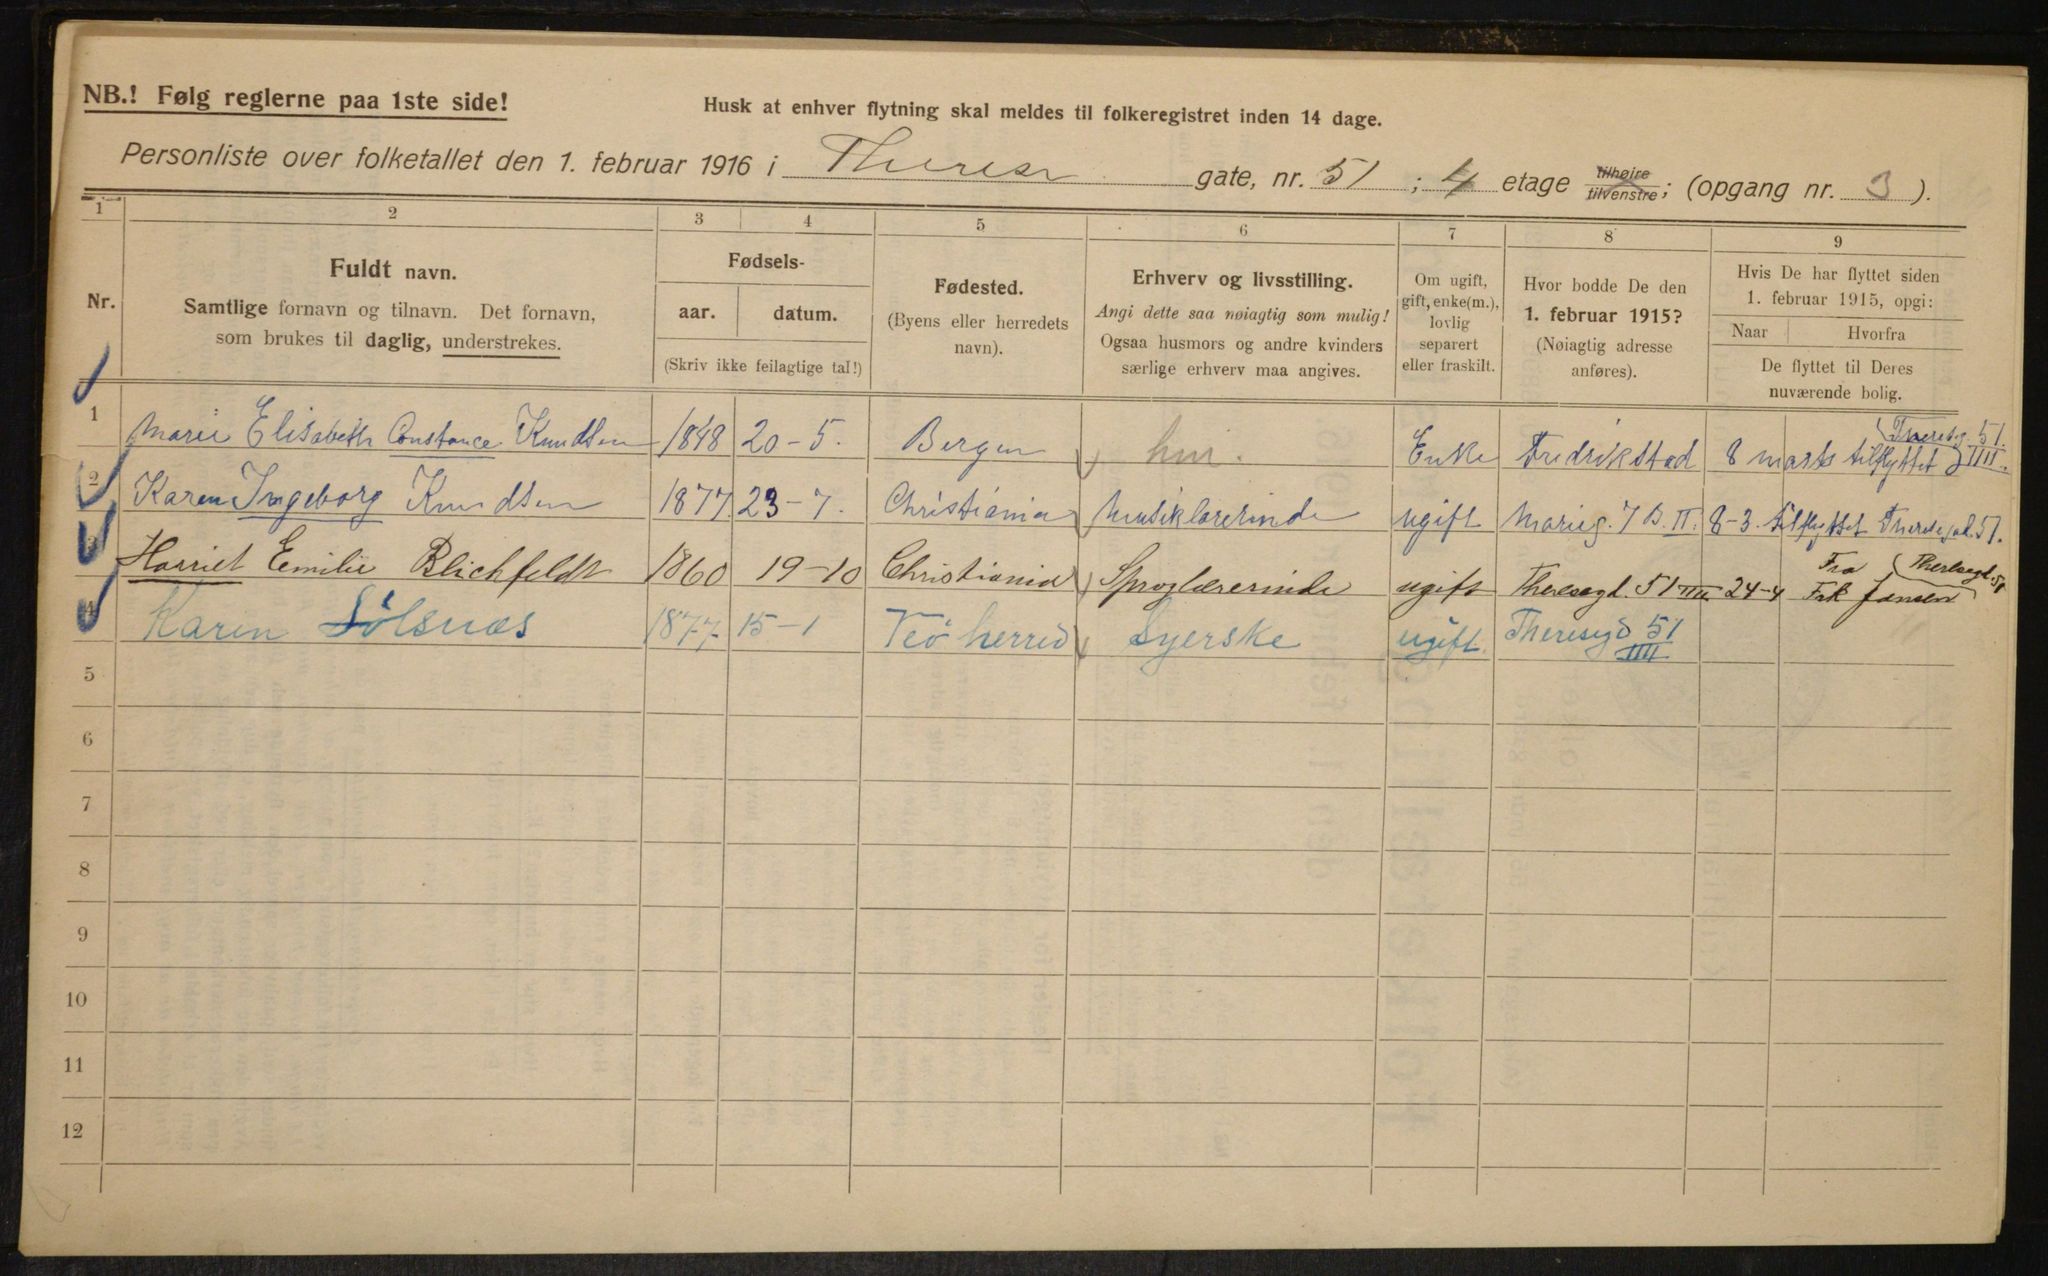 NB.! Følg reglerne paa 1ste side!
Husk at enhver flytning skal meldes til folkeregistret inden 14 dage.
Personliste over folketallet den 1. februar 1916 i Therese gate, nr. 51 ; 4 etage tilhøire tilvenstre; (opgang nr. 3 ).
1 2 3 4 5 6 7 8 9
Nr.
Fuldt navn.
Samtlige fornavn og tilnavn. Det fornavn,
som brukes til daglig, understrekes.
Fødsels-
aar. datum.
(Skriv ikke feilagtige tal!)
Fødested.
(Byens eller herredets
navn).
Erhverv og livsstilling.
Angi dette saa nøiagtig som mulig!
Ogsaa husmors og andre kvinders
særlige erhverv maa angives.
Om ugift,
gift, enke(m.),
lovlig
separert
eller fraskilt.
Hvor bodde De den
1. februar 1915?
(Nøiagtig adresse
anføres).
Hvis De har flyttet siden
1. februar 1915, opgi:
Naar Hvorfra
De flyttet til Deres
nuværende bolig.
1 Marie Elisabeth Constance Knudsen 1848 20-5. Bergen Enke Fredrikstad 8 marts tilflyttet Theresg. 51. IIII.
2 Karen Ingeborg Knudsen 1877 23-7. Christiania Musiklærerinde ugift Marieg. 7 B. II. 8-3. Tilflyttet Theresegd. 51.
3 Harriet Emilie Blichfeldt 1860 19-10 Christiania Sproglærerinde ugift Theresegd. 51 IIII 24-4 Fra Frk Jansen Theresegd. 51
4 Karen Sølsnæs 1877 15-1 Veö herred Syerske ugift. Theresegd 51 IIII
5
6
7
8
9
10
11
12